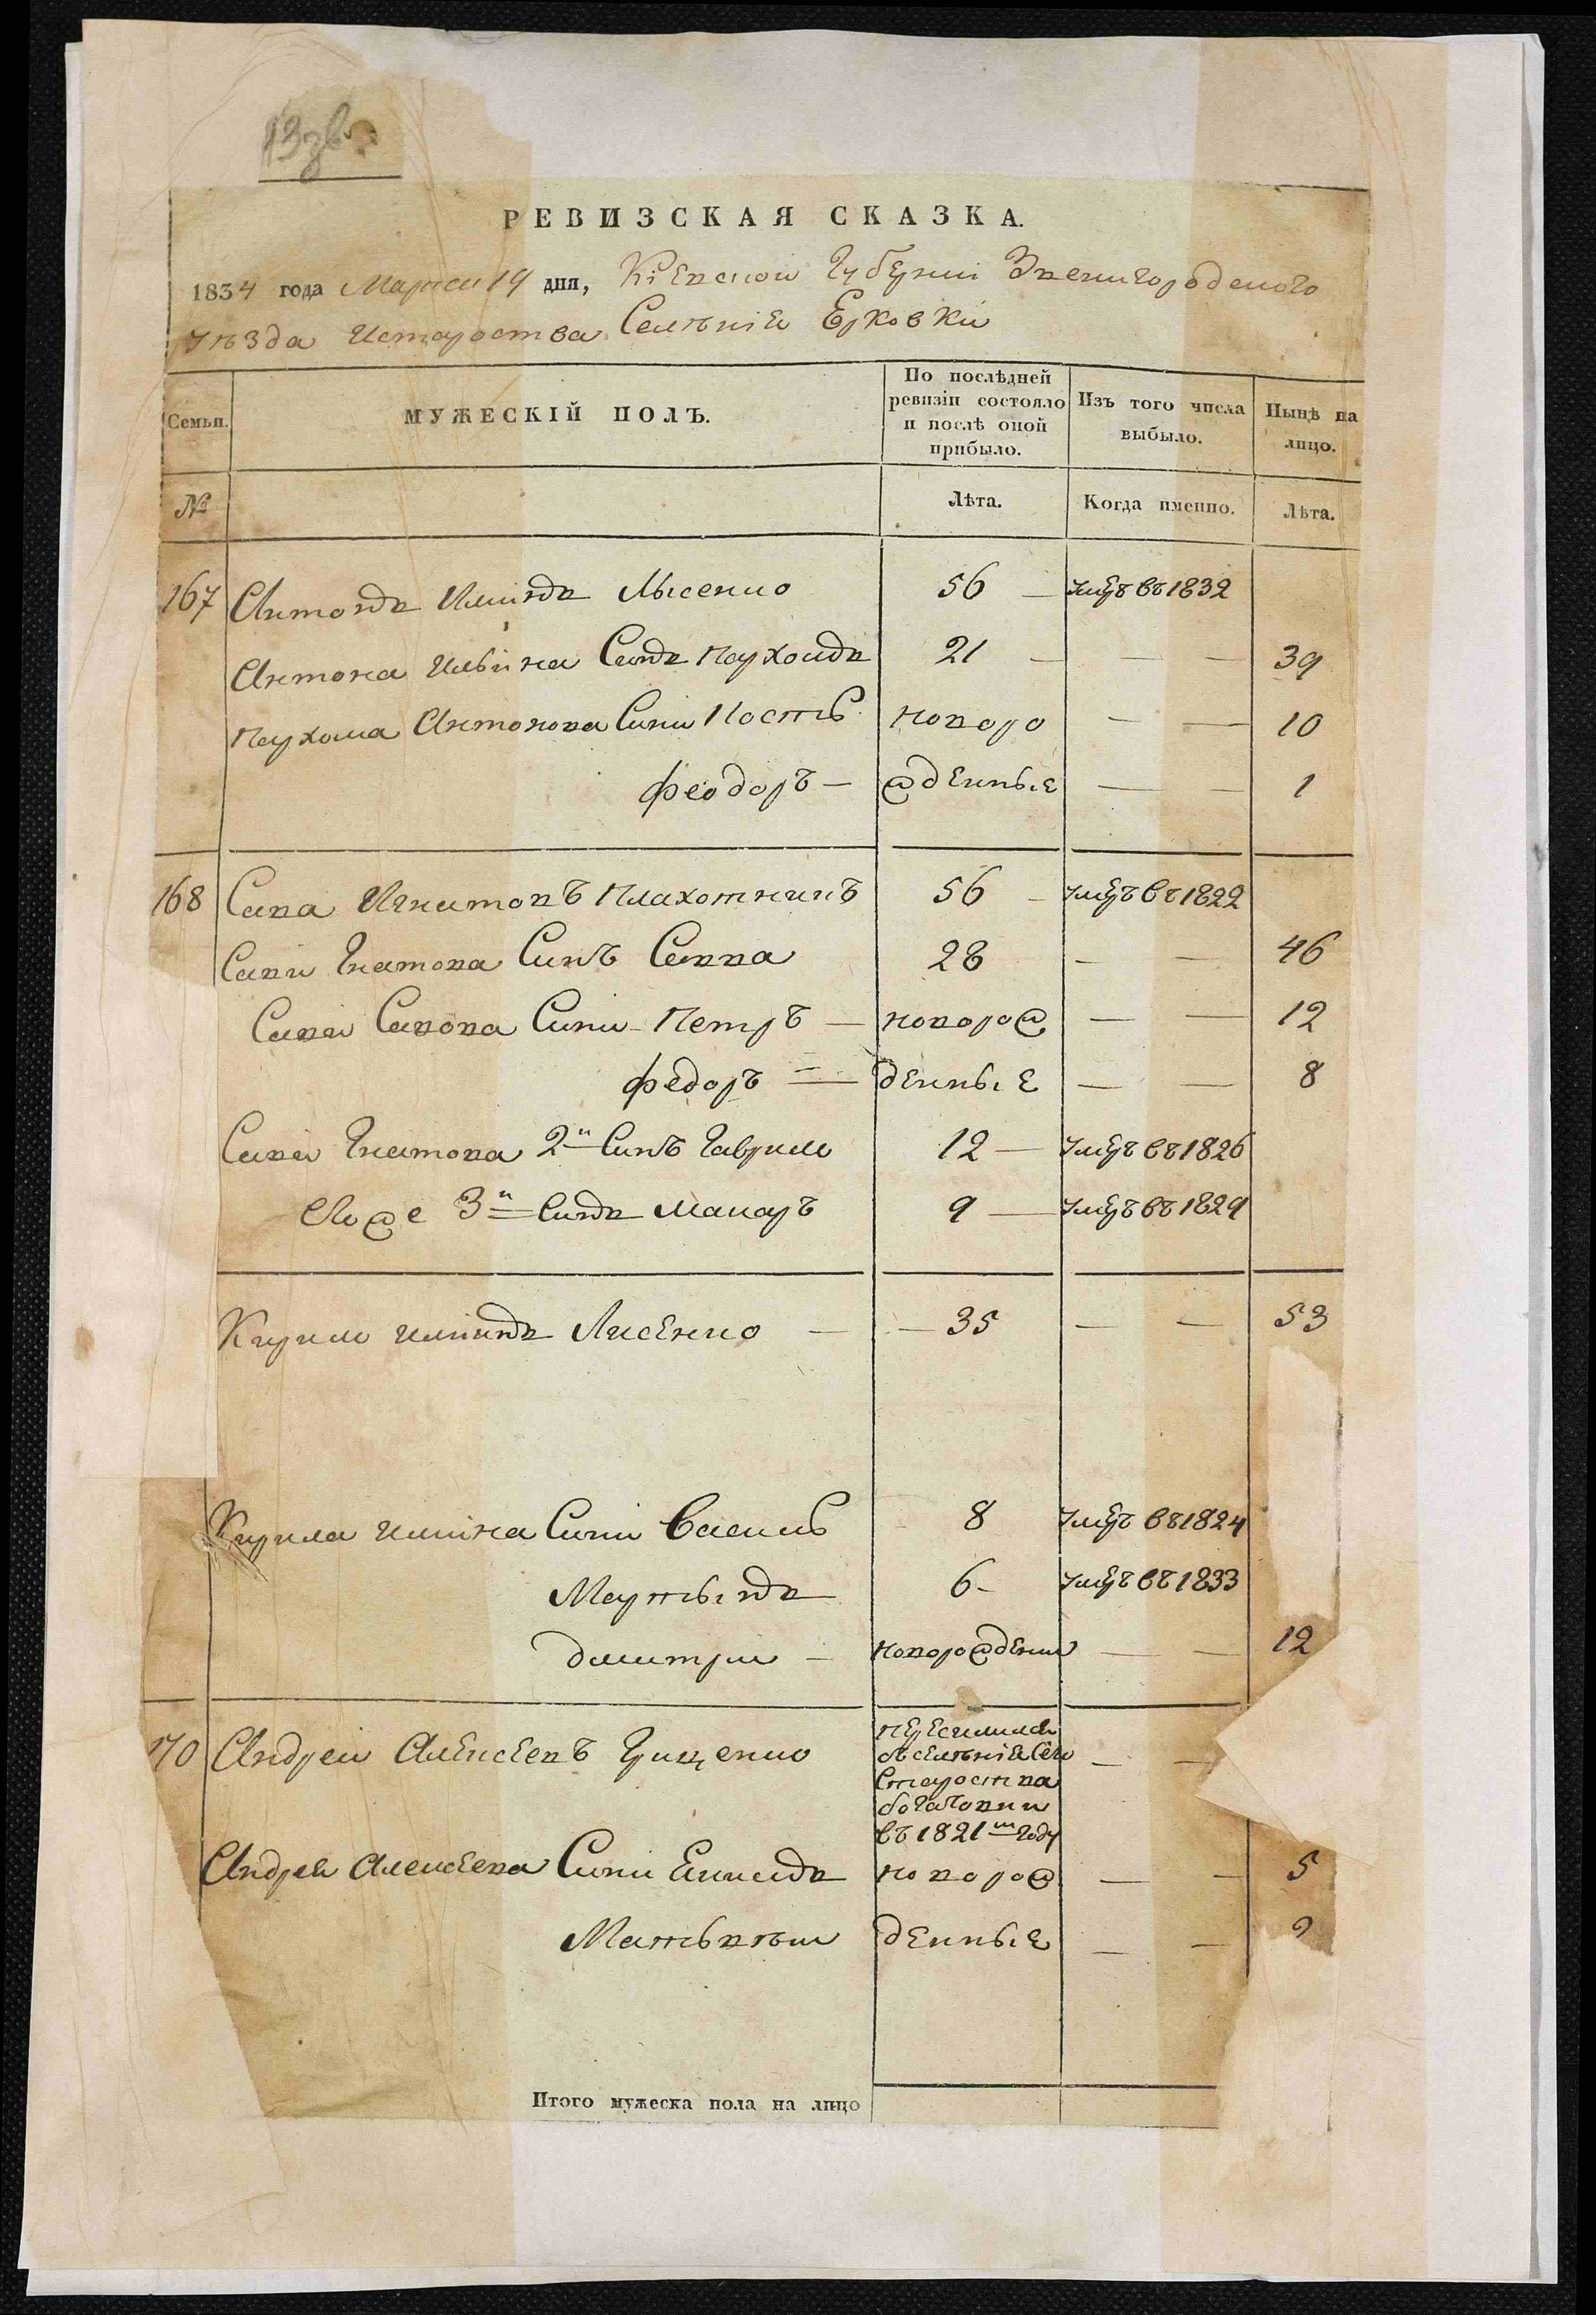 РЕВИЗСКАЯ СКАЗКА.
1834 года Марта 19 дня, Кіевской Губерніи Звенигородского
уѣзда Истароства Селѣнія Ерковки
Семьи. МУЖЕСКІЙ ПОЛЪ. По послѣдней ревизіи состояло и послѣ оной прибыло. Изъ того числа выбыло. Нынѣ на лицо.
№ Лѣта. Когда именно. Лѣта.
167 Антонъ Илінъ Лысенко 56 — умеръ въ 1832
Антона Ильіна Синъ Пархомъ 21 — — — 39
Пархома Антонова Сини Костъ новоро — — 10
Феодоръ — жденные — — 1
168 Сава Игнатовъ Плахотникъ 56 — умеръ въ 1822
Сави Гнатова Синъ Савва 28 — — 46
Сави Савова Сини Петръ — новорож — — 12
Федоръ — денные — — 8
Сави Гнатова 2й Синъ Гаврило 12 — умеръ въ 1826
Его же 3й Синъ Макаръ 9 — умеръ въ 1829
Кирило Илінъ Лисенко — — 35 — — 53
Кирила Иліна Сини Василь 8 умеръ въ 1824
Мартынъ 6 — умеръ въ 1833
Дмитрии — новорожденни — — 12
170 Андреи Алексеевъ Грищенко пересилился — —
въ селѣніе Сего
Староства
богачовки
въ 1821м году
Андрея Алексеева Сини Екимъ новорож — — 5
Матьвѣи денные — —
Итого мужеска пола на лицо